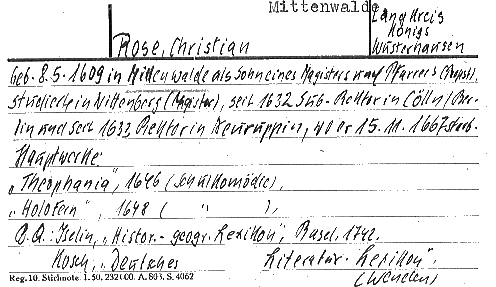 Mittenwalde
Landkreis
Königs
Wusterhausen
Rose, Christian
geb. 8.5.1609 in Mittenwalde als Sohn eines Magisters und Pfarrers (Propst),
studierte in Wittenberg (Magister), seit 1632 Sub-Rektor in Cölln/Ber-
lin und seit 1633 Rektor in Neuruppin, wo er 15.11.1667 starb.
Hauptwerke:
„Theophania", 1646 (Schulkomödie),
„Holofern", 1648 ( " ),
B.Q.: Iselin, „Histor.- geogr. Lexikon", Basel, 1742.
Kosch, „Deutsches Literatur-Lexikon".
(Wenden)
Reg. 10. Stichnote. 1. 50, 232100. A. 803. S. 4062